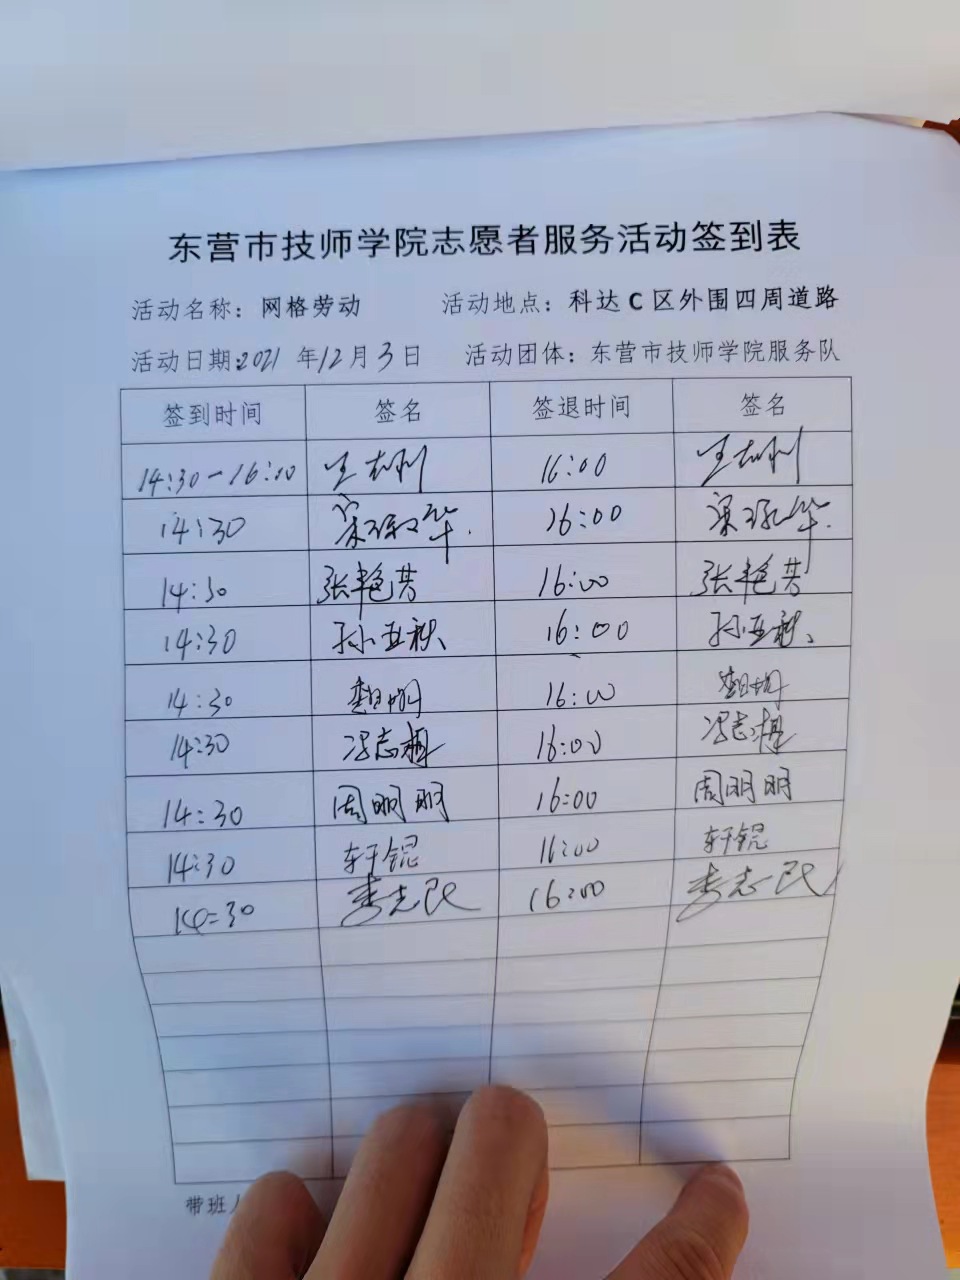 东营市技师学院志愿者服务活动签到表
活动名称：网格劳动 活动地点：科达C区外围四周道路
活动日期:2021年12月3日 活动团体：东营市技师学院服务队
签到时间 签名 签退时间 签名
14:30-16:00 王志刚 16:00 王志刚
14:30 16:00
14:30 张艳芳 16:00 张艳芳
14:30 孙亚秋 16:00 孙亚秋
14:30 16:00
14:30 冯志梅 16:00 冯志梅
14:30 周明明 16:00 周明明
14:30 轩锟 16:00 轩锟
14:30 李志民 16:00 李志民
带班